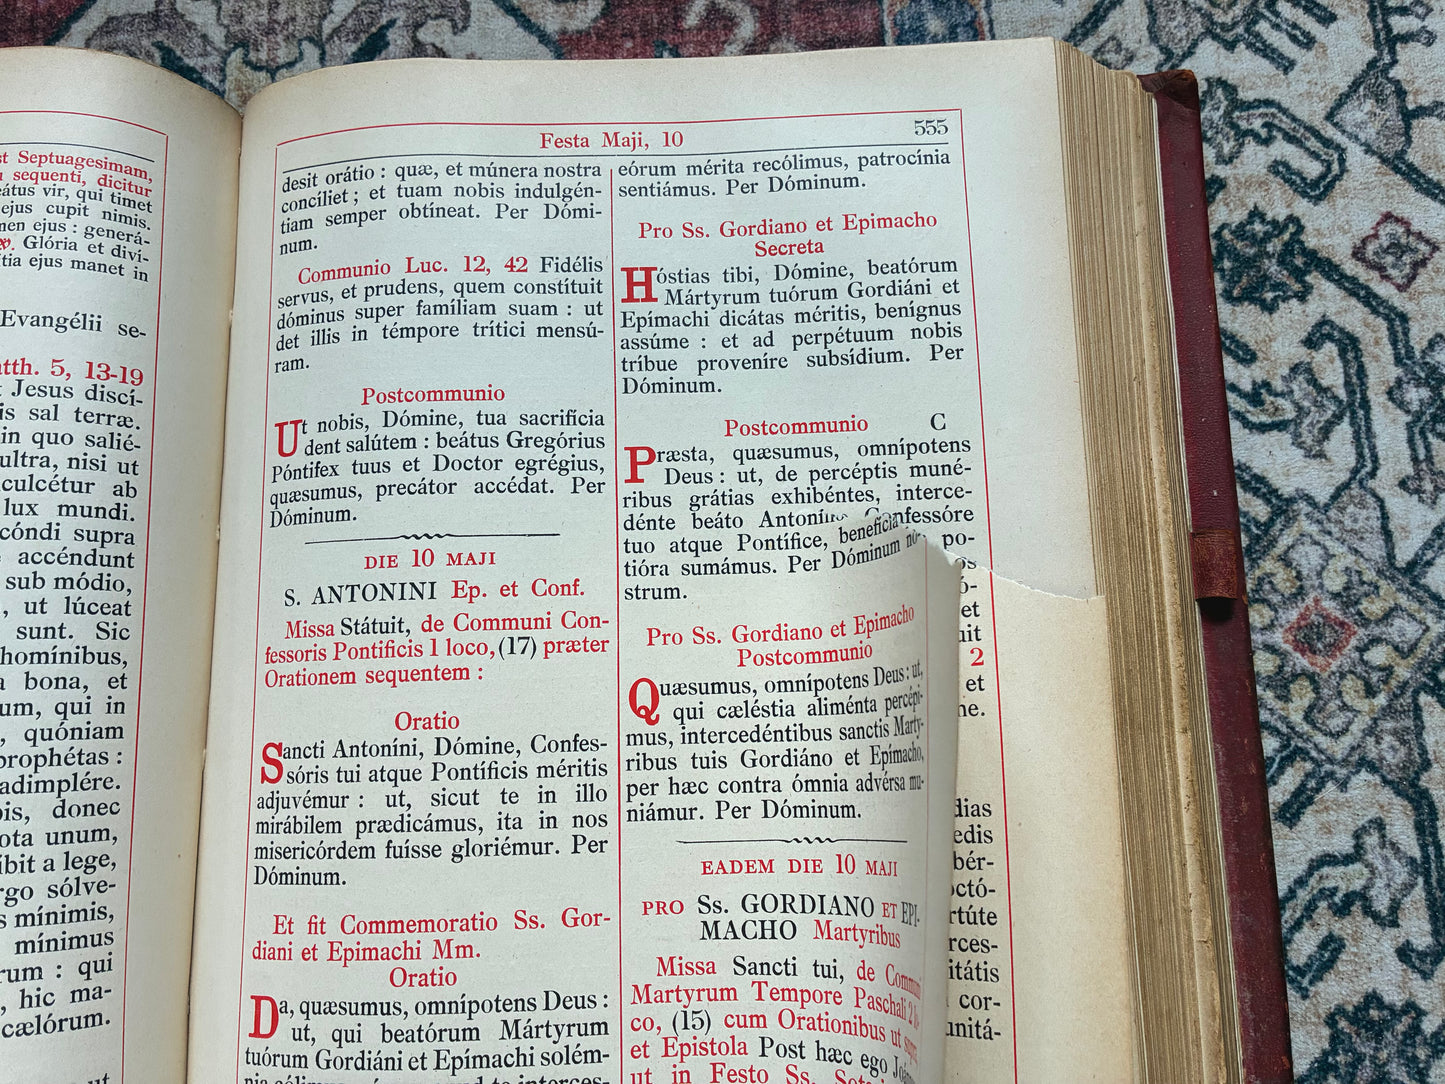 st Septuagesimam,
sequenti, dicitur
eátus vir, qui timet
ejus cupit nimis.
men ejus : generá-
Glória et diví-
tia ejus manet in
Evangélii se-
atth. 5, 13-19
Jesus discí-
is sal terræ.
in quo salié-
ultra, nisi ut
culcétur ab
lux mundi.
scóndi supra
accéndunt
sub módio,
, ut lúceat
sunt. Sic
homínibus,
a bona, et
um, qui in
, quóniam
prophétas :
adimplére.
bis, donec
ota unum,
ibit a lege,
rgo sólve-
s mínimis,
mínimus
rum : qui
, hic ma-
cælórum.
ut
Festa Maji, 10
555
desit orátio : quæ, et múnera nostra
concíliet ; et tuam nobis indulgén-
tiam semper obtíneat. Per Dómi-
num.
Communio Luc. 12, 42 Fidélis
servus, et prudens, quem constítuit
dóminus super famíliam suam : ut
det illis in témpore trítici mensú-
ram.
Postcommunio
Ut nobis, Dómine, tua sacrifícia
dent salútem : beátus Gregórius
Póntifex tuus et Doctor egrégius,
quæsumus, precátor accédat. Per
Dóminum.
DIE 10 MAJI
S. ANTONINI Ep. et Conf.
Missa Státuit, de Communi Con-
fessoris Pontificis 1 loco, (17) præter
Orationem sequentem :
Oratio
Sancti Antoníni, Dómine, Confes-
sóris tui atque Pontíficis méritis
adjuvémur : ut, sicut te in illo
mirábilem prædicámus, ita in nos
misericórdem fuísse gloriémur. Per
Dóminum.
Et fit Commemoratio Ss. Gor-
diani et Epimachi Mm.
Oratio
Da, quæsumus, omnípotens Deus :
ut, qui beatórum Mártyrum
tuórum Gordiáni et Epímachi solém-
eórum mérita recólimus, patrocínia
sentiámus. Per Dóminum.
Pro Ss. Gordiano et Epimacho
Secreta
Hóstias tibi, Dómine, beatórum
Mártyrum tuórum Gordiáni et
Epímachi dicátas méritis, benígnus
assúme : et ad perpétuum nobis
tríbue proveníre subsídium. Per
Dóminum.
Postcommunio C
Præsta, quæsumus, omnípotens
Deus : ut, de percéptis muné-
ribus grátias exhibéntes, interce-
dénte beáto Antoníno Confessóre
tuo atque Pontífice, benefícia po-
tióra sumámus. Per Dóminum no-
strum.
Pro Ss. Gordiano et Epimacho
Postcommunio
Quæsumus, omnípotens Deus : ut,
qui cæléstia aliménta percépi-
mus, intercedéntibus sanctis Marty-
ribus tuis Gordiáno et Epímacho,
per hæc contra ómnia advérsa mu-
niámur. Per Dóminum.
EADEM DIE 10 MAJI
PRO Ss. GORDIANO ET EPI-
MACHO Martyribus
Missa Sancti tui, de Communi
Martyrum Tempore Paschali 2 lo-
co, (15) cum Orationibus ut supra
et Epistola Post hæc ego
ut in Festo Ss.
os
ó-
et
uit
2
et
ne.
dias
edis
bér-
octó-
rtúte
rces-
itátis
cor-
unitá-